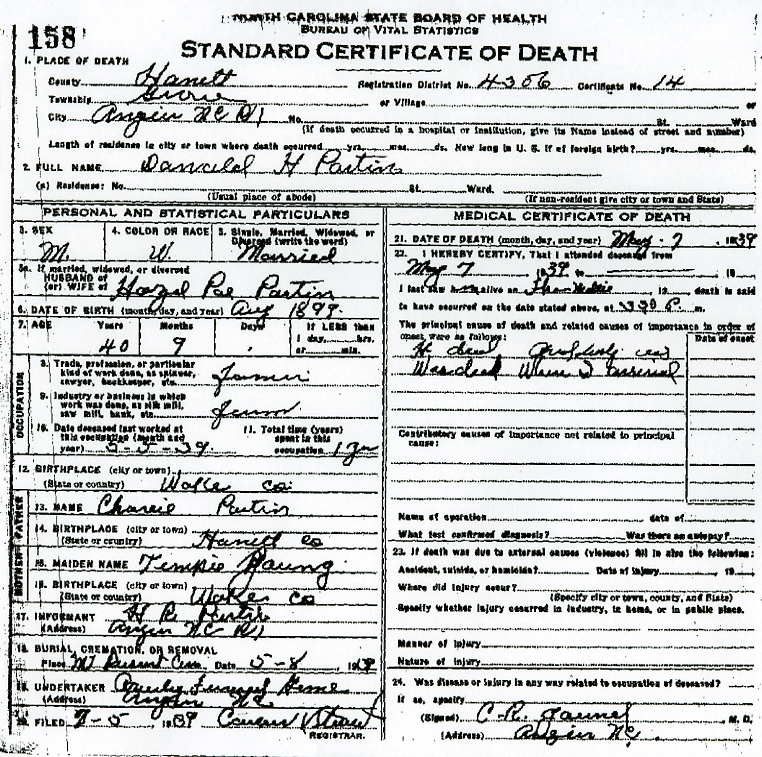 NORTH CAROLINA STATE BOARD OF HEALTH
BUREAU OF VITAL STATISTICS
158
STANDARD CERTIFICATE OF DEATH
1. PLACE OF DEATH
County Harnett Registration District No. 4306 Certificate No. 14
Township Grove or Village or
City Angier NC R1 No. St. Ward
(If death occurred in a hospital or institution, give its Name instead of street and number)
Length of residence in city or town where death occurred yrs. mos. ds. How long in U. S. if of foreign birth? yrs. mos. ds.
2. FULL NAME H Partin
(a) Residence: No. St. Ward.
(Usual place of abode) (If non-resident give city or town and State)
PERSONAL AND STATISTICAL PARTICULARS
3. SEX 4. COLOR OR RACE 5. Single, Married, Widowed, or
Divorced (write the word)
M. W. Married
5a. If married, widowed, or divorced
HUSBAND of
(or) WIFE of Hazel Partin
6. DATE OF BIRTH (month, day, and year) Aug 1899
7. AGE Years Months Days If LESS than
1 day, hrs.
or min.
40 9
OCCUPATION
8. Trade, profession, or particular
kind of work done, as spinner,
sawyer, bookkeeper, etc. Farmer
9. Industry or business in which
work was done, as silk mill,
saw mill, bank, etc. Farm
10. Date deceased last worked at
this occupation (month and
year) 5-5-39
11. Total time (years)
spent in this
occupation
12. BIRTHPLACE (city or town)
(State or country) Wake Co.
FATHER
13. NAME Partin
14. BIRTHPLACE (city or town)
(State or country) Harnett Co
MOTHER
15. MAIDEN NAME Tempie Young
16. BIRTHPLACE (city or town)
(State or country) Wake Co
17. INFORMANT H R Partin
(Address) Angier NC R1
18. BURIAL, CREMATION, OR REMOVAL
Place Cem. Date 5-8 19
19. UNDERTAKER Funeral Home
(Address) Angier N.C.
20. FILED 7-5 1939
REGISTRAR.
MEDICAL CERTIFICATE OF DEATH
21. DATE OF DEATH (month, day, and year) May - 7 1939
22. I HEREBY CERTIFY, That I attended deceased from
May 7 1939 to 19
I last saw h alive on 19 death is said
to have occurred on the date stated above, at P. m.
The principal cause of death and related causes of importance in order of
onset, were as follows: Date of onset
H died
Was dead When I arrived
Contributory causes of importance not related to principal
cause:
Name of operation date of
What test confirmed diagnosis? Was there an autopsy?
23. If death was due to external causes (violence) fill in also the following:
Accident, suicide, or homicide? Date of injury 19
Where did injury occur?
(Specify city or town, county, and State)
Specify whether injury occurred in industry, in home, or in public place.
Manner of injury
Nature of injury
24. Was disease or injury in any way related to occupation of deceased?
If so, specify
(Signed) C. R. M. D.
(Address) Angier NC.